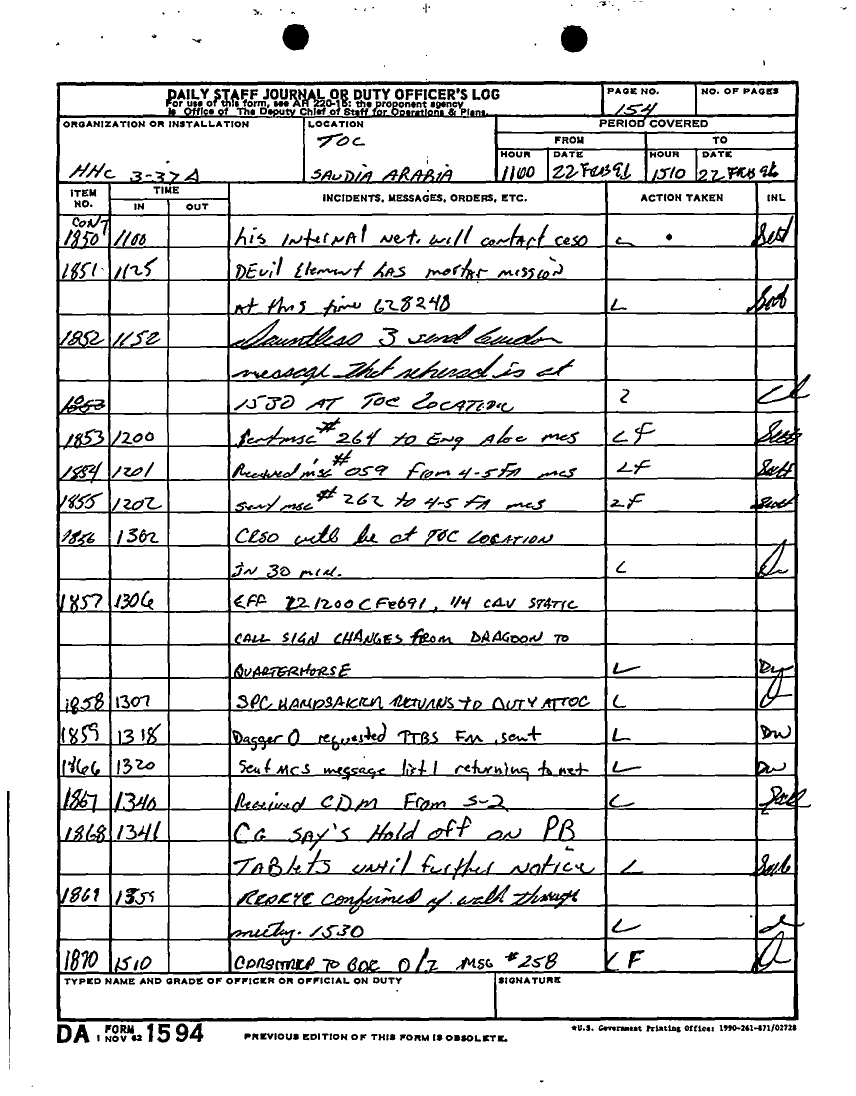 DAILY STAFF JOURNAL OR DUTY OFFICER'S LOG
For use of this form, see AR 220-15; the proponent agency
is Office of The Deputy Chief of Staff for Operations & Plans.
PAGE NO.
154
NO. OF PAGES
ORGANIZATION OR INSTALLATION
HHC 3-37A
LOCATION
TOC
SAUDIA ARABIA
PERIOD COVERED
FROM TO
HOUR DATE HOUR DATE
1100 22 FEB 91 1510 22 FEB 91
ITEM NO. TIME INCIDENTS, MESSAGES, ORDERS, ETC. ACTION TAKEN INL
IN OUT
CONT
1850 1100 his INTERNAL Net. will contact CESO L
1851 1125 DEvil Element has mortar mission
At this time 628248 L
1852 1152 Dauntless 3 send
message that rehersal is at
1853 1530 AT TOC LOCATION 2
1853 1200 Sent msc # 264 to Eng Aloc mcs LF
1854 1201 Received msc # 059 From 4-5 FA mcs LF
1855 1202 sent msc # 262 to 4-5 FA mcs LF
1856 1302 CESO will be at TOC LOCATION
IN 30 min. L
1857 1306 EFF 221200CFeb91, 1/4 CAV STATIC
CALL SIGN CHANGES FROM DRAGOON TO
QUARTERHORSE L DW
1858 1307 SPC RETURNS TO DUTY AT TOC L
1859 1318 Dagger O requested TTBS Fm, sent L DW
1866 1320 Sent MCS message list 1 returning to net L DW
1867 1340 Received CDM From S-2 L
1868 1341 CG SAY'S Hold off on PB
TABlets until further Notice L
1869 1359 confirmed walk through
meeting. 1530 L
1870 1510 TO BDE O/Z MSG # 258 LF
TYPED NAME AND GRADE OF OFFICER OR OFFICIAL ON DUTY
SIGNATURE
DA FORM 1594
1 NOV 62
PREVIOUS EDITION OF THIS FORM IS OBSOLETE.
*U.S. Government Printing Office: 1990-261-871/02728